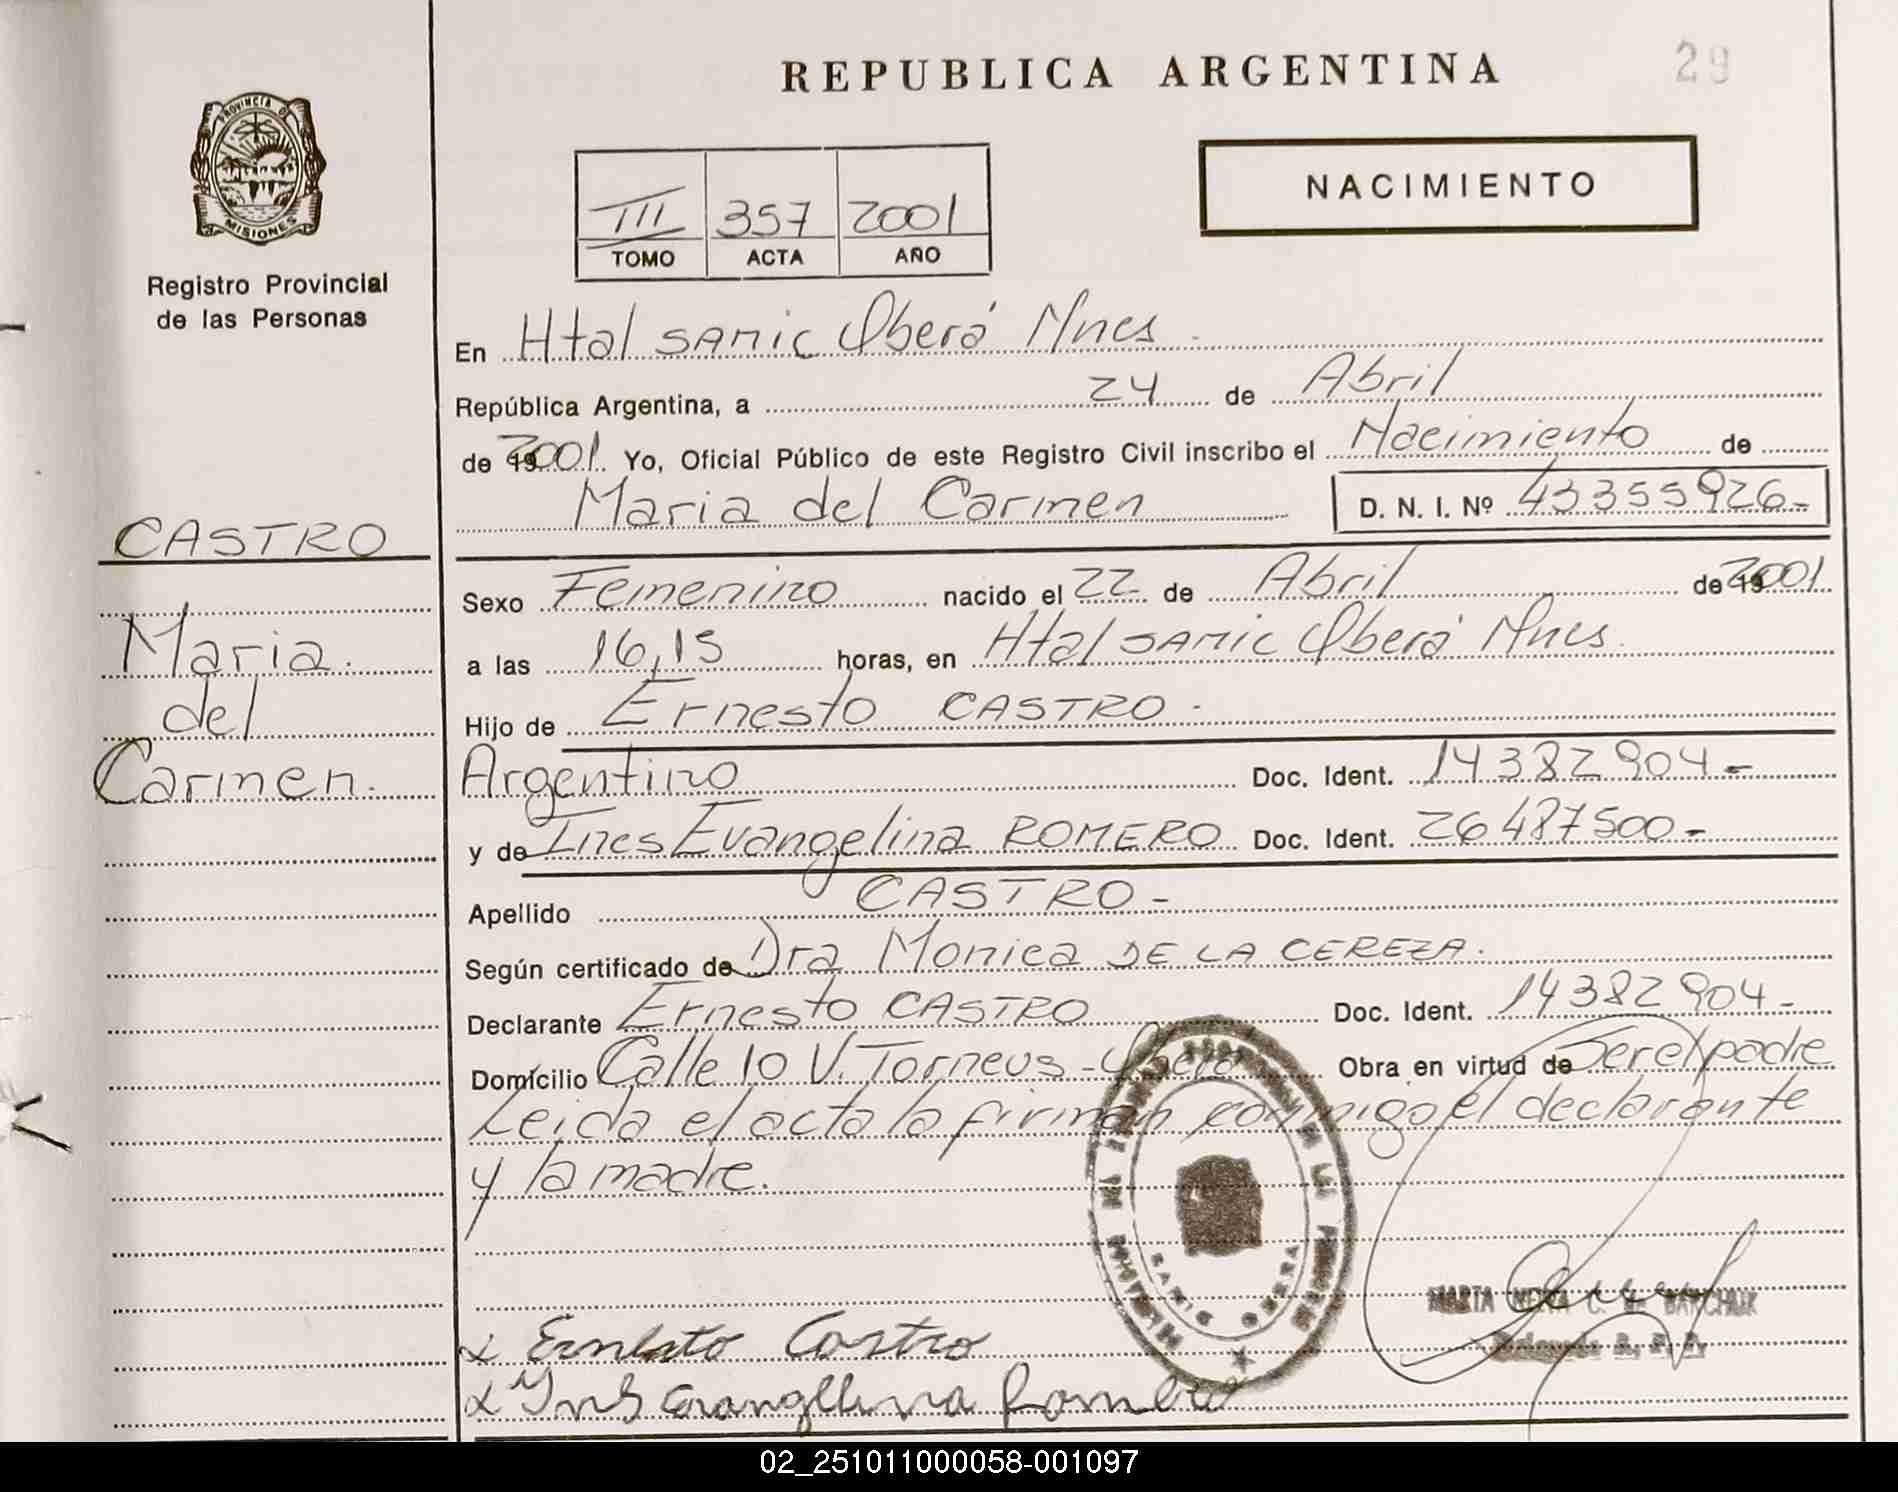 REPUBLICA ARGENTINA
29
PROVINCIA DE
MISIONES
Registro Provincial
de las Personas
III 357 2001
TOMO ACTA AÑO
NACIMIENTO
En Htal SAMIC Oberá Mnes.
República Argentina, a 24 de Abril
de 2001. Yo, Oficial Público de este Registro Civil inscribo el Nacimiento de
Maria del Carmen D. N. I. Nº 43355926-
CASTRO
Maria.
del
Carmen.
Sexo Femenino nacido el 22 de Abril de 2001
a las 16,15 horas, en Htal SAMIC Oberá Mnes.
Hijo de Ernesto CASTRO.
Argentino Doc. Ident. 14382904-
y de Ines Evangelina ROMERO Doc. Ident. 26487500-
Apellido CASTRO-
Según certificado de Dra Monica DE LA CEREZA.
Declarante Ernesto CASTRO Doc. Ident. 14382904-
Domicilio Calle 10 V. Torneus-Oberá Obra en virtud de Ser el padre
Leida el acta la firman conmigo el declarante
y la madre.
SAMIC OBERA
MARTA C. de BARCHUK
Delegada R. P. P.
x Ernesto Castro
x Ines Evangelina Romero
02_251011000058-001097